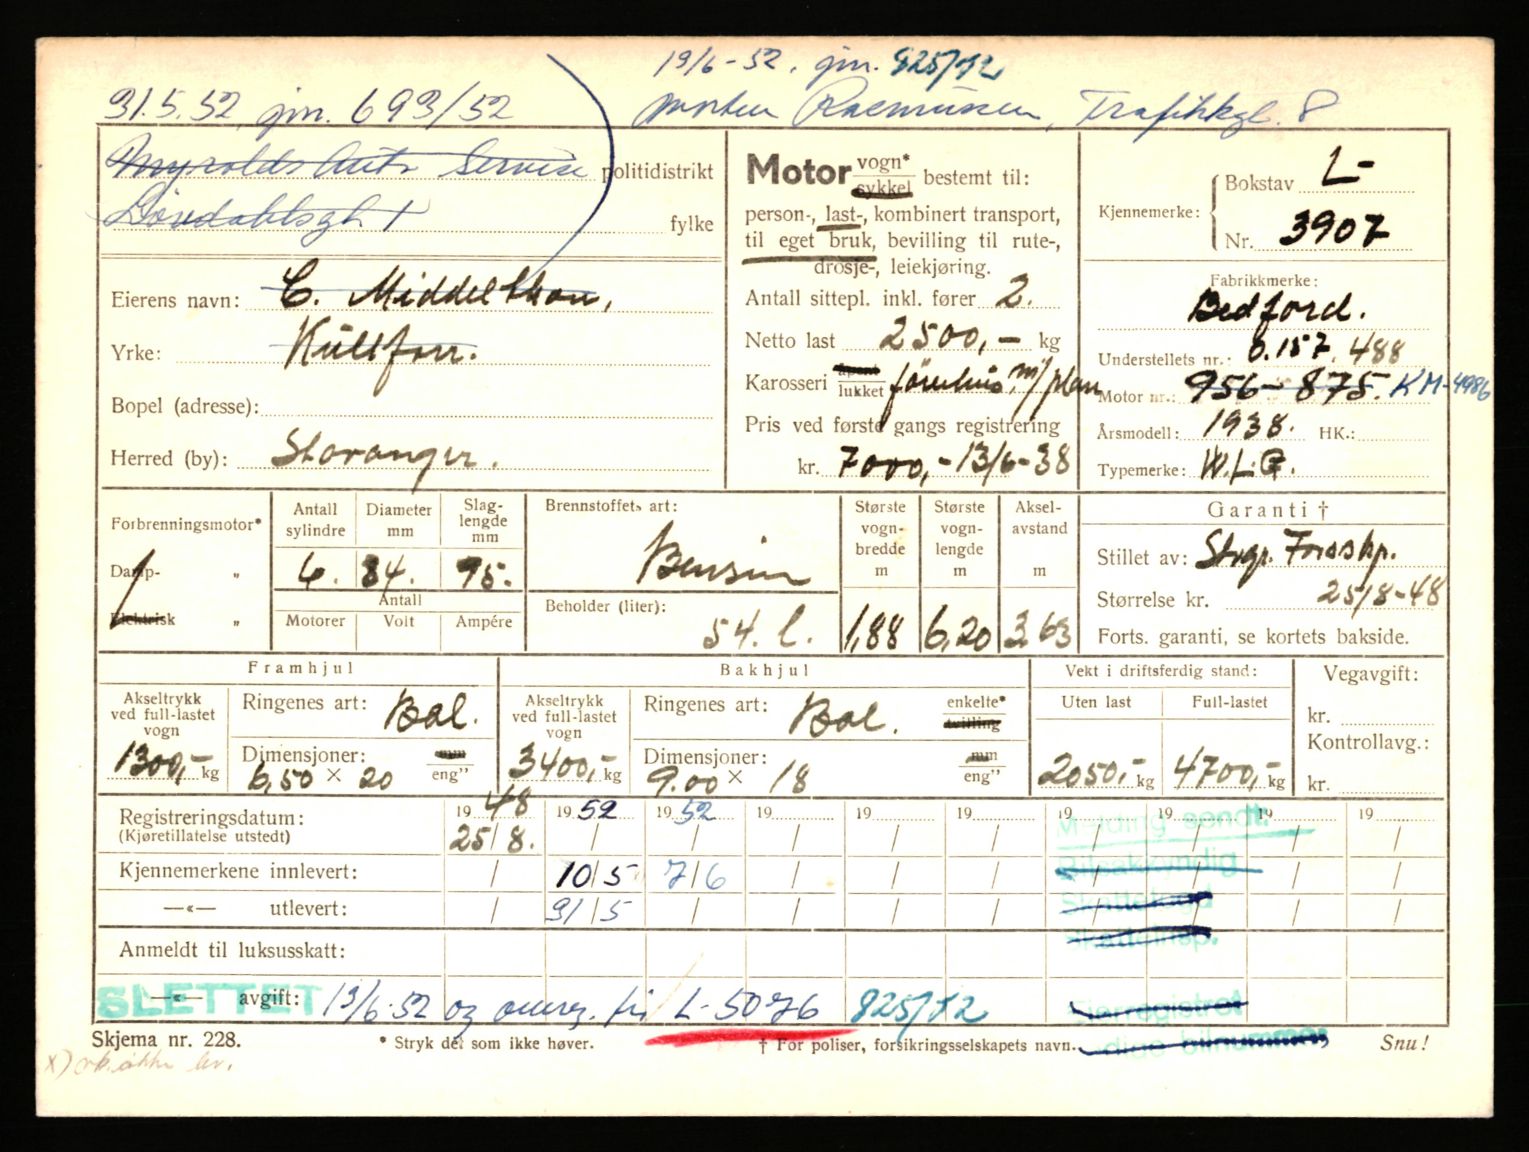 19/6-52, jnr. 825/52
31.5.52 jnr. 693/52 Morten Rasmussen, Trafikkgt. 8
Auto Service politidistrikt
Løvdahlsgt 1 fylke
Motor vogn* sykkel bestemt til:
person-, last-, kombinert transport,
til eget bruk, bevilling til rute-,
drosje-, leiekjøring.
Antall sittepl. inkl. fører 2.
Netto last 2500,- kg
Karosseri åpent lukket førerhus m/plan
Pris ved første gangs registrering
kr. 7000,- 13/6-38
Kjennemerke: Bokstav L-
Nr. 3907
Eierens navn: C. Middelthon,
Yrke: Kullforr.
Bopel (adresse):
Herred (by): Stavanger.
Fabrikkmerke:
Bedford.
Understellets nr.: 0.157.488
Motor nr.: 956-875. KM-4986
Årsmodell: 1938. HK.:
Typemerke: W.L.G.
Forbrenningsmotor*
Damp- „
Elektrisk „
Antall sylindre Diameter mm Slaglengde mm
6. 84. 95.
Antall
Motorer Volt Ampére
Brennstoffets art:
Bensin
Beholder (liter):
54. l.
Største vognbredde m Største vognlengde m Akselavstand m
1,88 6,20 3,63
Garanti †
Stillet av: Stvgr. Forsskp.
Størrelse kr. 25/8-48
Forts. garanti, se kortets bakside.
Framhjul Bakhjul Vekt i driftsferdig stand: Vegavgift:
Akseltrykk ved full-lastet vogn 1300,- kg
Ringenes art: Bal.
Dimensjoner: mm eng”
6,50 × 20
Akseltrykk ved full-lastet vogn 3400,- kg
Ringenes art: Bal. enkelte* tvilling
Dimensjoner: mm eng”
9.00 × 18
Uten last Full-lastet
2050,- kg 4700,- kg
kr.
Kontrollavg.:
kr.
Registreringsdatum: 19 48 19 52 19 52 19 19 19 19 19 19 19
(Kjøretillatelse utstedt) 25/8. / / / / / / / / /
Kjennemerkene innlevert: / 10/5 7/6 / / / / / / /
—«— utlevert: / 31/5 / / / / / / / /
Melding sendt:
Bilsakkyndig
Skattefogd
Skatteinsp.
Anmeldt til luksusskatt:
—«— avgift: 13/6-52 og omreg. til L-5076 825/52
SLETTET
Eierregistret
Skjema nr. 228. * Stryk det som ikke høver. † For poliser, forsikringsselskapets navn. Snu!